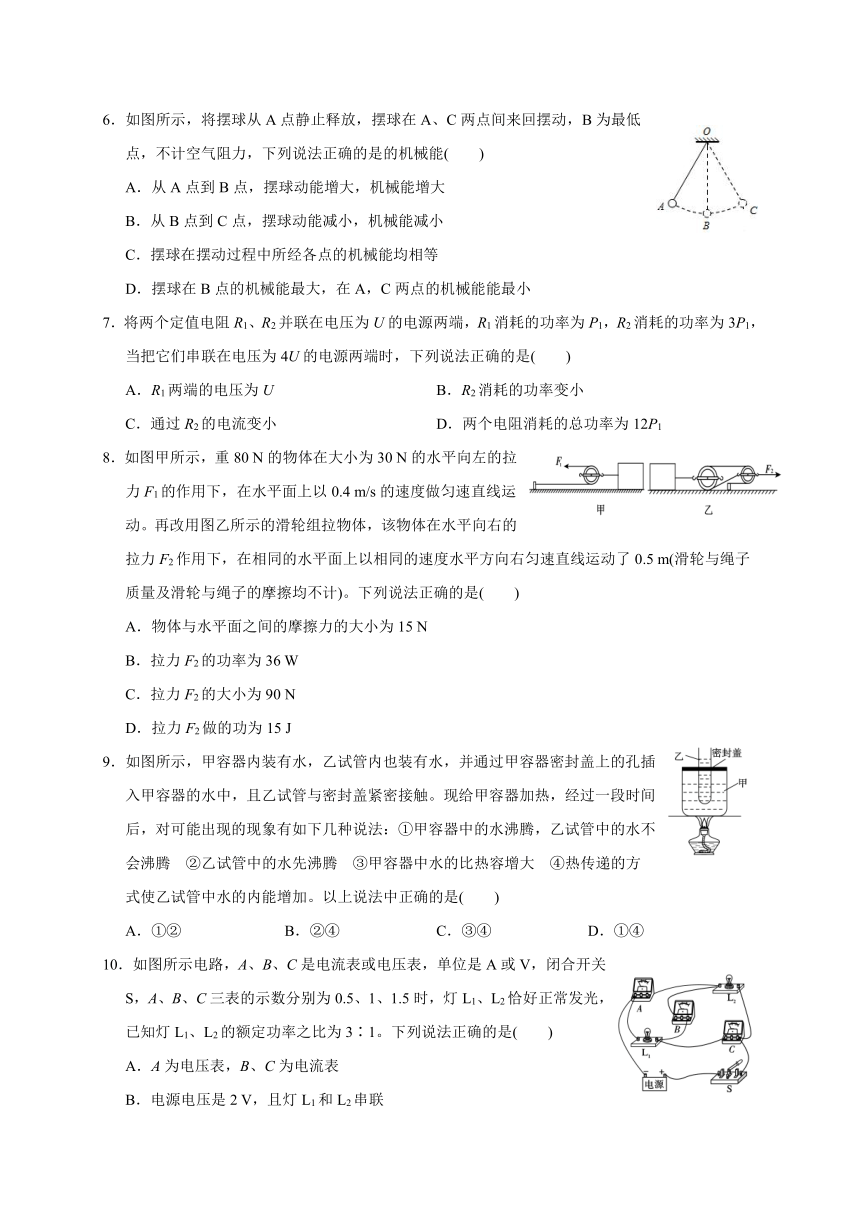 6．如图所示，将摆球从 A 点静止释放，摆球在 A、C 两点间来回摆动，B 为最低
点，不计空气阻力，下列说法正确的是的机械能(　　)
A．从 A 点到 B 点，摆球动能增大，机械能增大
B．从 B 点到 C 点，摆球动能减小，机械能减小
C．摆球在摆动过程中所经各点的机械能均相等
D．摆球在 B 点的机械能最大，在 A，C 两点的机械能能最小
O
A
B
C
7．将两个定值电阻 R1、R2 并联在电压为 U 的电源两端，R1 消耗的功率为 P1，R2 消耗的功率为 3P1，
当把它们串联在电压为 4U 的电源两端时，下列说法正确的是(　　)
A．R1 两端的电压为 U　　B．R2 消耗的功率变小
C．通过 R2 的电流变小　　D．两个电阻消耗的总功率为 12P1
8．如图甲所示，重 80 N 的物体在大小为 30 N 的水平向左的拉
力 F1 的作用下，在水平面上以 0.4 m/s 的速度做匀速直线运
动。再改用图乙所示的滑轮组拉物体，该物体在水平向右的
拉力 F2 作用下，在相同的水平面上以相同的速度水平方向右匀速直线运动了 0.5 m(滑轮与绳子
质量及滑轮与绳子的摩擦均不计)。下列说法正确的是(　　)
F1
F2
甲　　乙
A．物体与水平面之间的摩擦力的大小为 15 N
B．拉力 F2 的功率为 36 W
C．拉力 F2 的大小为 90 N
D．拉力 F2 做的功为 15 J
9．如图所示，甲容器内装有水，乙试管内也装有水，并通过甲容器密封盖上的孔插
入甲容器的水中，且乙试管与密封盖紧密接触。现给甲容器加热，经过一段时间
后，对可能出现的现象有如下几种说法：①甲容器中的水沸腾，乙试管中的水不
会沸腾　②乙试管中的水先沸腾　③甲容器中水的比热容增大　④热传递的方
式使乙试管中水的内能增加。以上说法中正确的是(　　)
乙　密封盖
甲
A．①②　　B．②④　　C．③④　　D．①④
10．如图所示电路，A、B、C 是电流表或电压表，单位是 A 或 V，闭合开关
S，A、B、C 三表的示数分别为 0.5、1、1.5 时，灯 L1、L2 恰好正常发光，
已知灯 L1、L2 的额定功率之比为 3∶1。下列说法正确的是(　　)
A
B
C
L1
电源
－　＋
S
A．A 为电压表，B、C 为电流表
B．电源电压是 2 V，且灯 L1 和 L2 串联